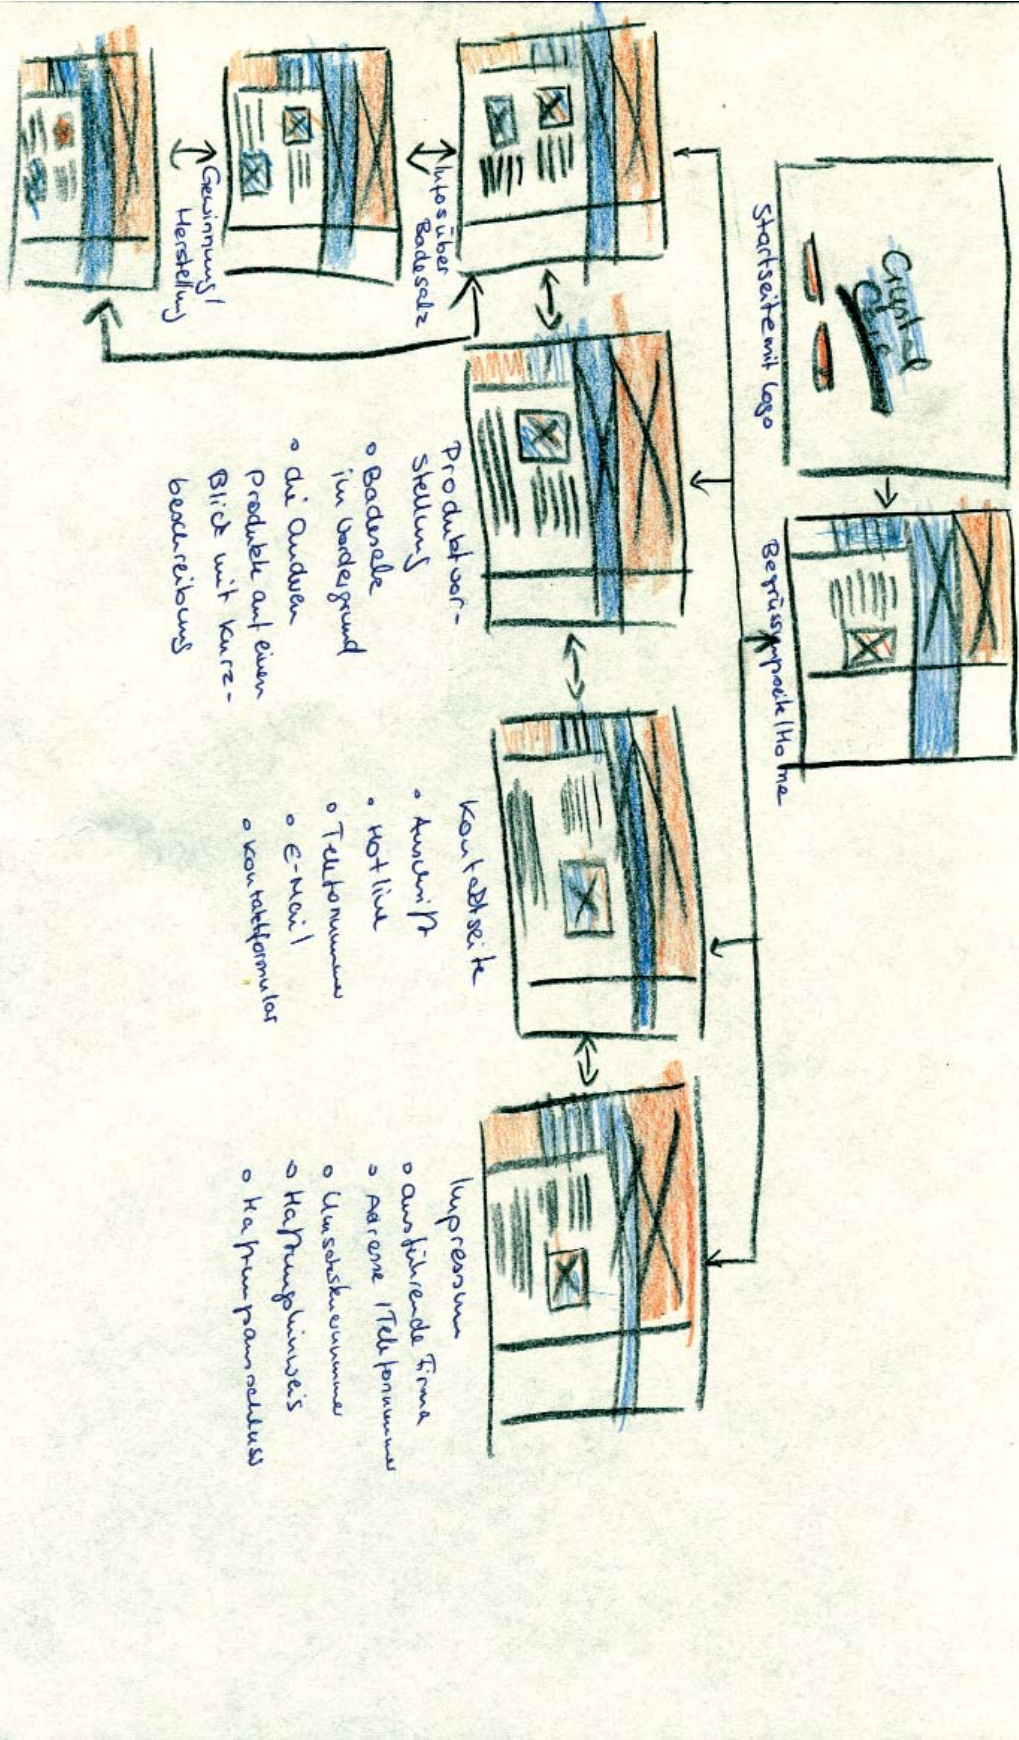 Crystal
Care
Startseite mit Logo
Begrüssungsseite/Home
Infos über
Badesalz
Gewinnung/
Herstellung
Produktvor-
stellung
o Badesalz
im Vordergrund
o die anderen
Produkte auf einen
Blick mit Kurz-
beschreibung
Kontaktseite
o Anschrift
o Hotline
o Telefonnummer
o E-Mail
o Kontaktformular
Impressum
o ausführende Firma
o Adresse / Telefonnummer
o Umsatzsteuernummer
o Haftungshinweis
o Haftungsausschluss